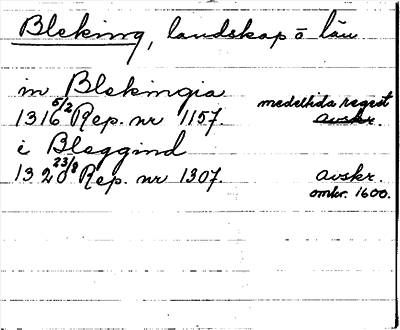 Bleking, landskap o län
in Blekingia
1316 5/2 Rep. nr 1157. medeltida regest avskr.
i Bleggind
1320 23/3 Rep. nr 1307. avskr.
omkr. 1600.